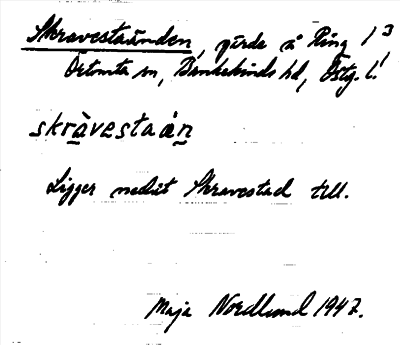 Skravestaänden, gärde å Ring 1³
Örtomta sn, Bankekinds hd, Östg. l.
skràvestaán
Ligger nedåt Skravestad till.
Maja Nordlund 1947.